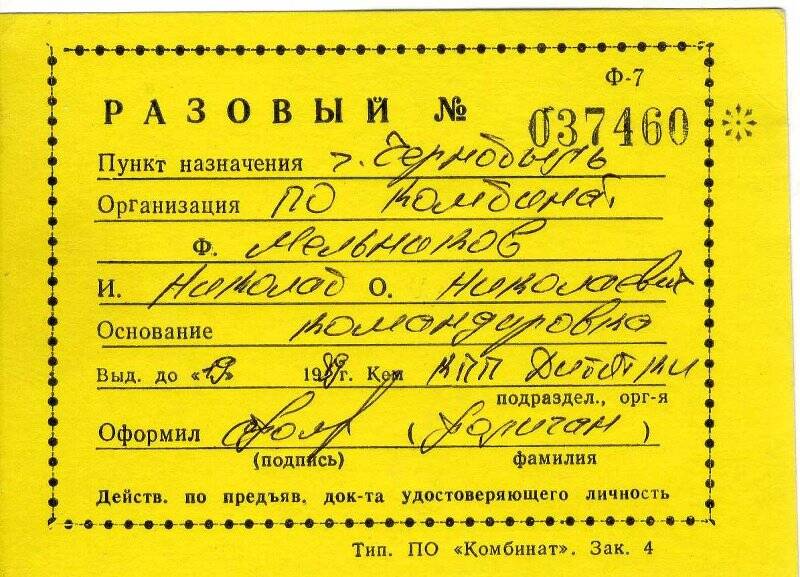 Ф-7
РАЗОВЫЙ № 037460
Пункт назначения г. Чернобыль
Организация ПО Комбинат
Ф. Мельников
И. Николай О. Николаевич
Основание командировка
Выд. до «19» 1989г. Кем КПП Дитятки
подраздел., орг-я
Оформил ( )
(подпись) фамилия
Действ. по предъяв. док-та удостоверяющего личность
Тип. ПО «Комбинат». Зак. 4